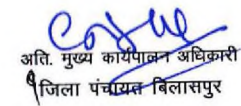 अति. मुख्य कार्यपालन अधिकारी
जिला पंचायत बिलासपुर